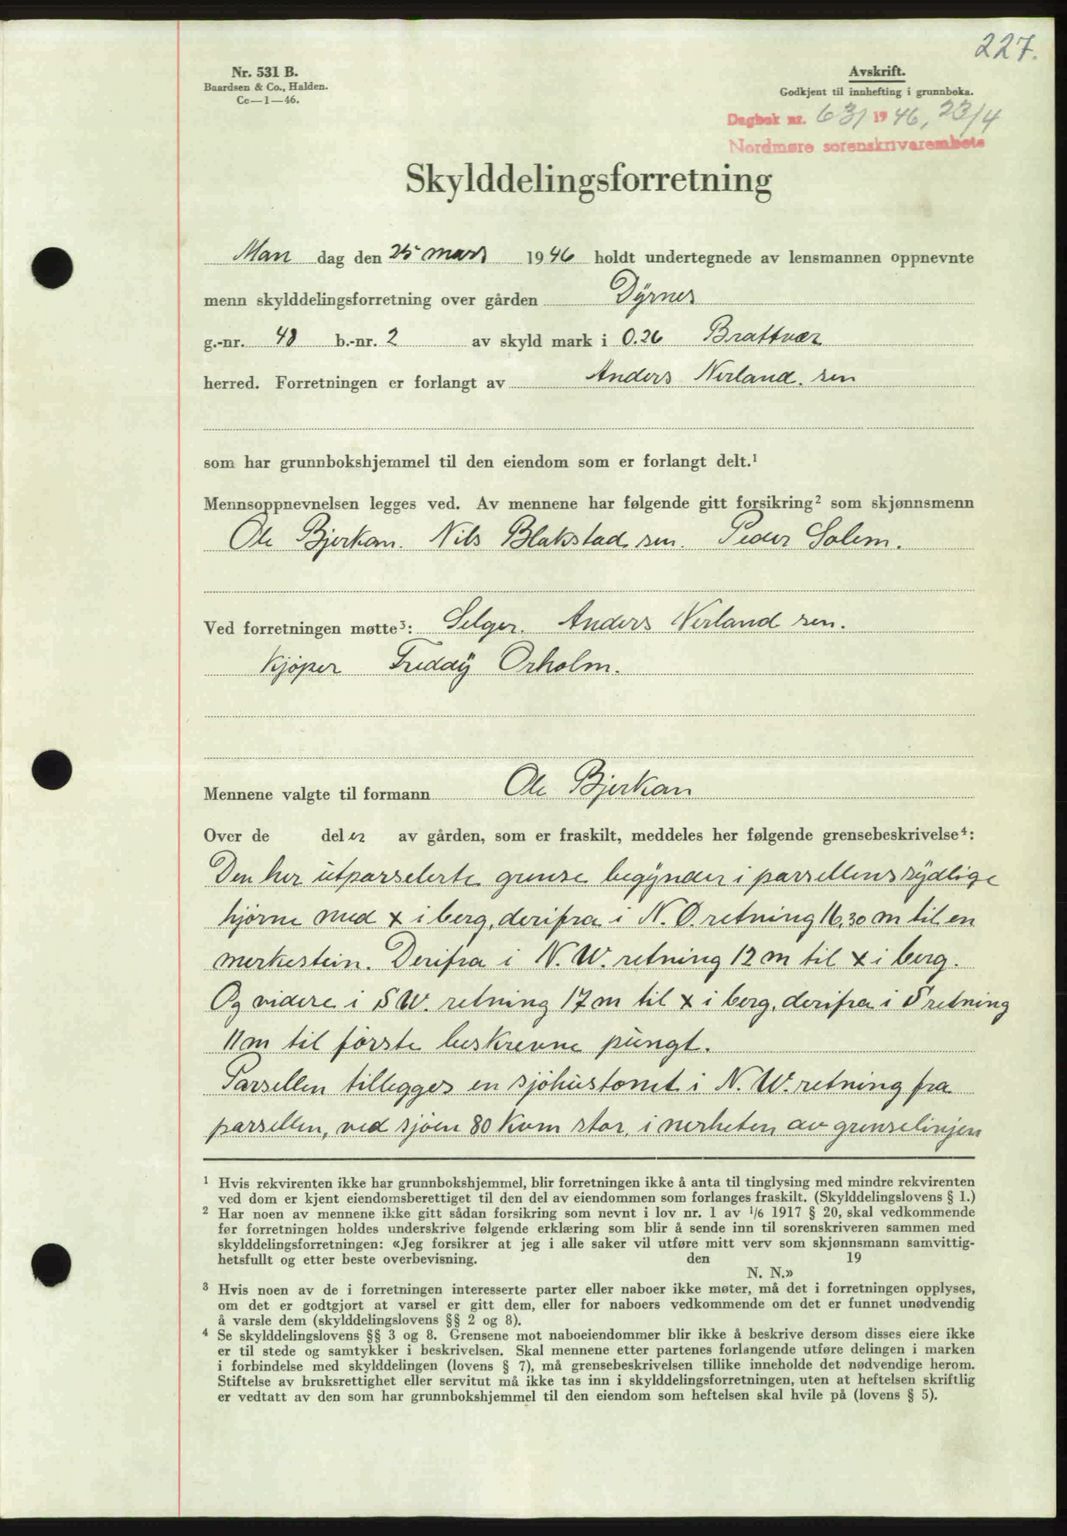 227.
Nr. 531 B.
Baardsen & Co., Halden.
Cc—1—46.
Avskrift.
Godkjent til innhefting i grunnboka.
Dagbok nr. 631 1946, 23/4
Nordmøre sorenskrivarembete
Skylddelingsforretning
Man dag den 25 mars 1946 holdt undertegnede av lensmannen oppnevnte
menn skylddelingsforretning over gården Dyrnes
g.-nr. 48 b.-nr. 2 av skyld mark i 0.26 Brattvær
herred. Forretningen er forlangt av Anders Nerland. sen
som har grunnbokshjemmel til den eiendom som er forlangt delt.¹
Mennsoppnevnelsen legges ved. Av mennene har følgende gitt forsikring² som skjønnsmenn
Ole Bjerkan. Nils Blakstad sen. Peder Solem.
Ved forretningen møtte³: Selger. Anders Nerland sen.
Kjøper Freddy Orholm.
Mennene valgte til formann Ole Bjerkan
Over de del er av gården, som er fraskilt, meddeles her følgende grensebeskrivelse⁴:
Den her utparselerte grense begynder i parsellens sydlige
hjørne med x i berg, derifra i N.Ø. retning 16,30 m til en
merkestein. Derifra i N.W. retning 12 m til x i berg.
Og videre i S W. retning 17 m til x i berg, derifra i S retning
11 m til første beskrevne pungt.
Parsellen tillegges en sjøhustomt i N.W. retning fra
parsellen, ved sjøen 80 Kvm stor, i nerheten av grenselinjen
¹ Hvis rekvirenten ikke har grunnbokshjemmel, blir forretningen ikke å anta til tinglysing med mindre rekvirenten
ved dom er kjent eiendomsberettiget til den del av eiendommen som forlanges fraskilt. (Skylddelingslovens § 1.)
² Har noen av mennene ikke gitt sådan forsikring som nevnt i lov nr. 1 av 1/6 1917 § 20, skal vedkommende
før forretningen holdes underskrive følgende erklæring som blir å sende inn til sorenskriveren sammen med
skylddelingsforretningen: «Jeg forsikrer at jeg i alle saker vil utføre mitt verv som skjønnsmann samvittig-
hetsfullt og etter beste overbevisning. den 19
N. N.»
³ Hvis noen av de i forretningen interesserte parter eller naboer ikke møter, må det i forretningen opplyses,
om det er godtgjort at varsel er gitt dem, eller for naboers vedkommende om det er funnet unødvendig
å varsle dem (skylddelingslovens §§ 2 og 8).
⁴ Se skylddelingslovens §§ 3 og 8. Grensene mot naboeiendommer blir ikke å beskrive dersom disses eiere ikke
er til stede og samtykker i beskrivelsen. Skal mennene etter partenes forlangende utføre delingen i marken
i forbindelse med skylddelingen (lovens § 7), må grensebeskrivelsen tillike inneholde det nødvendige herom.
Stiftelse av bruksrettighet eller servitut må ikke tas inn i skylddelingsforretningen, uten at heftelsen skriftlig
er vedtatt av den som har grunnbokshjemmel til den eiendom som heftelsen skal hvile på (lovens § 5).